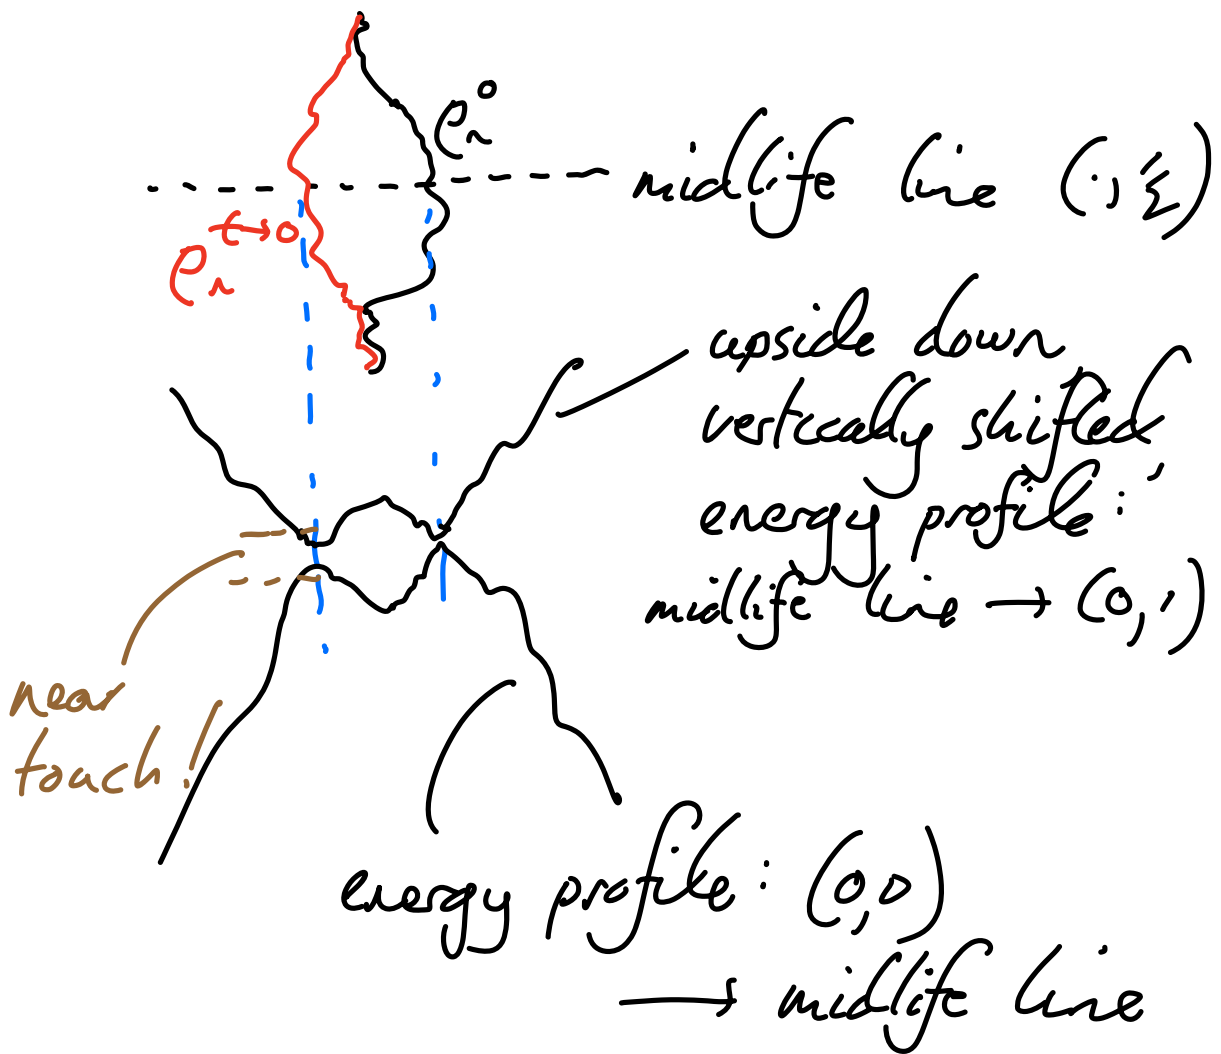 ρₙ⁰
midlife line (·, ½)
ρₙ^{t→0}
upside down,
vertically shifted
energy profile:
midlife line → (0,1)
near
touch!
energy profile: (0,0)
→ midlife line